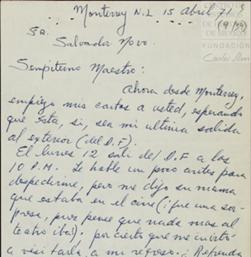 Monterrey N.L 15 Abril 71
Sr.
Salvador Novo.
Sempiterno Maestro:
Ahora desde Monterrey,
empiezo mis cartas a usted, esperando
que esta, si, sea mi ultima salida
al exterior (del D.F).
El lunes 12 sali del D.F a las
10 P.M. Le hable un poco antes para
despedirme, pero me dijo su mama
que estaba en el cine (¡fue una sor-
presa, pues pense que nada mas al
teatro iba!). por cierto que me invito
a visitarla a mi regreso.
FUNDACIÓN